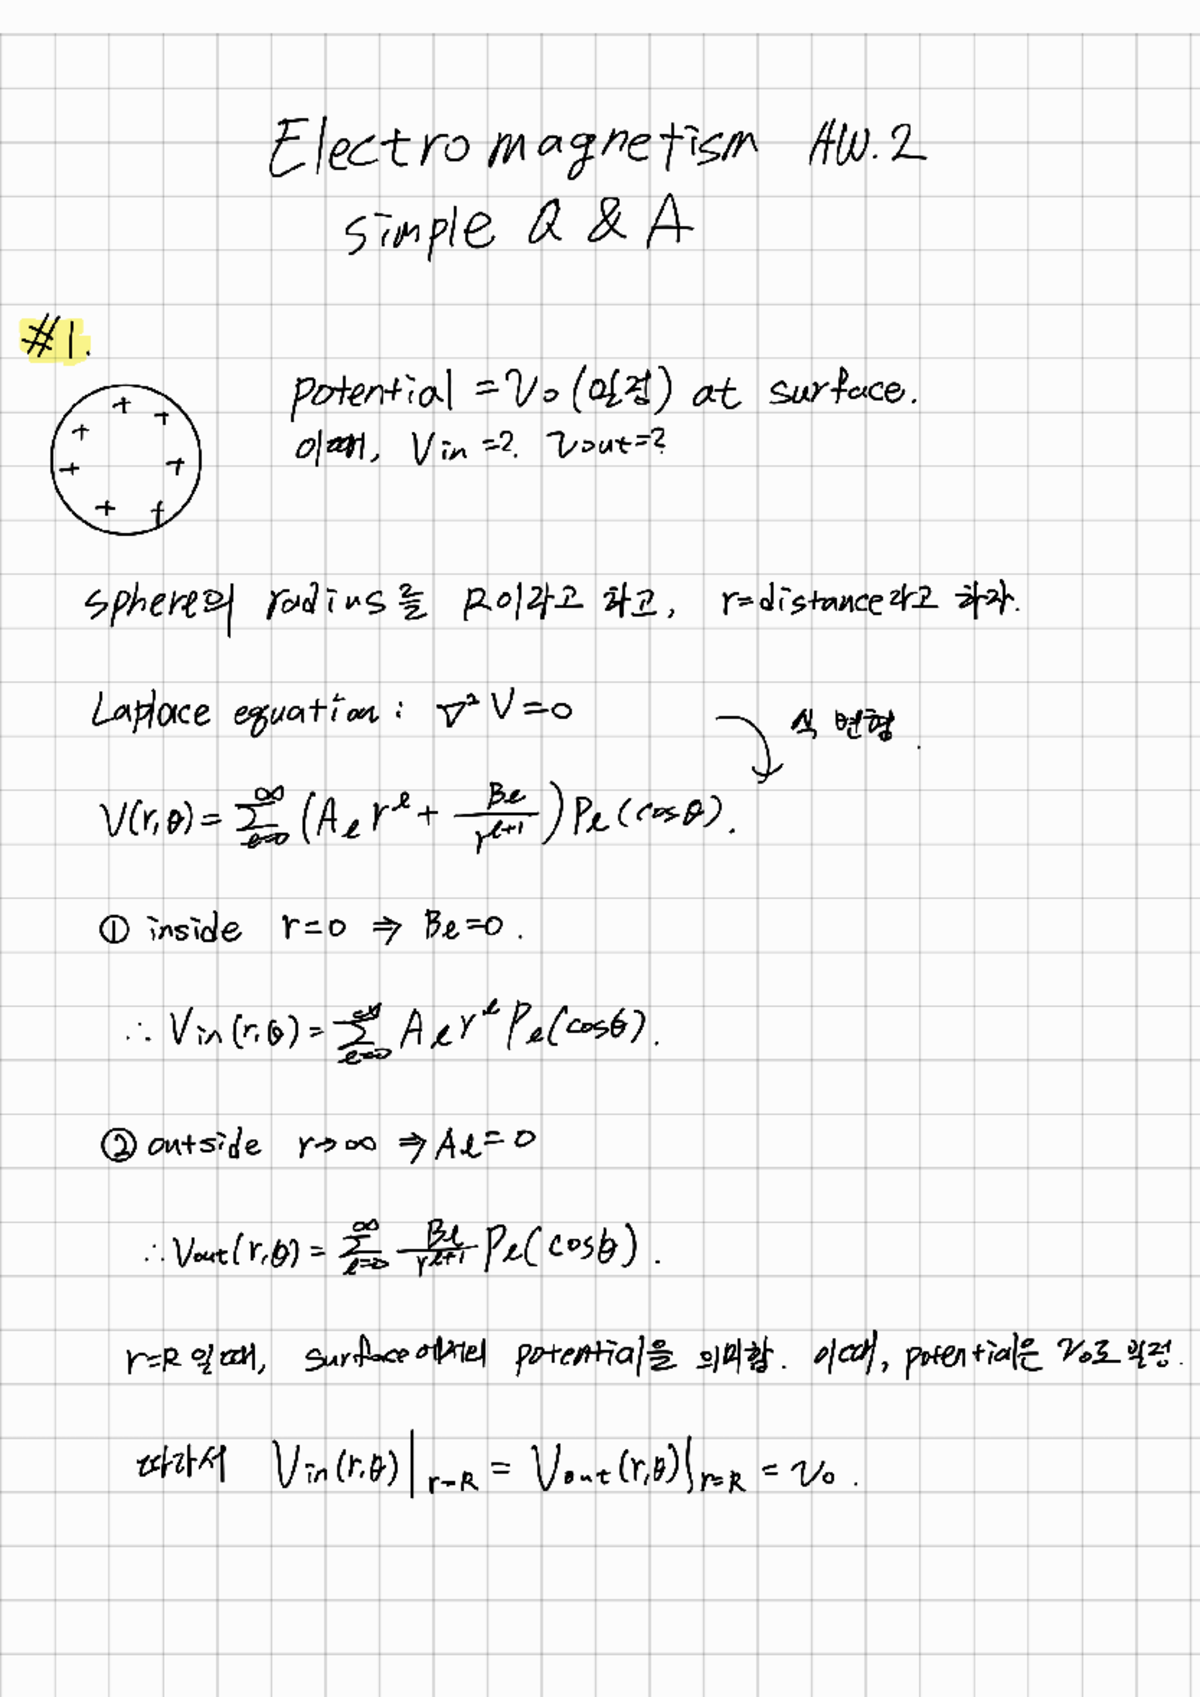 Electromagnetism HW.2
simple Q & A
#1.
potential = V₀ (일정) at surface.
이때, Vin =?. Vout=?
+ + + + + + +
sphere의 radius를 R이라고 하고, r=distance라고 하자.
Laplace equation : ∇² V=0
식 변형.
V(r,θ) = ∑_{ℓ=0}^{∞} (A_ℓ r^ℓ + B_ℓ/r^{ℓ+1}) P_ℓ(cosθ).
① inside r=0 ⇒ B_ℓ=0.
∴ Vin(r,θ) = ∑_{ℓ=0}^{∞} A_ℓ r^ℓ P_ℓ(cosθ).
② outside r→∞ ⇒ A_ℓ=0
∴ Vout(r,θ) = ∑_{ℓ=0}^{∞} B_ℓ/r^{ℓ+1} P_ℓ(cosθ).
r=R 일 때, surface에서의 potential을 의미함. 이때, potential은 V₀로 일정.
따라서 Vin(r,θ)|_{r=R} = Vout(r,θ)|_{r=R} = V₀.